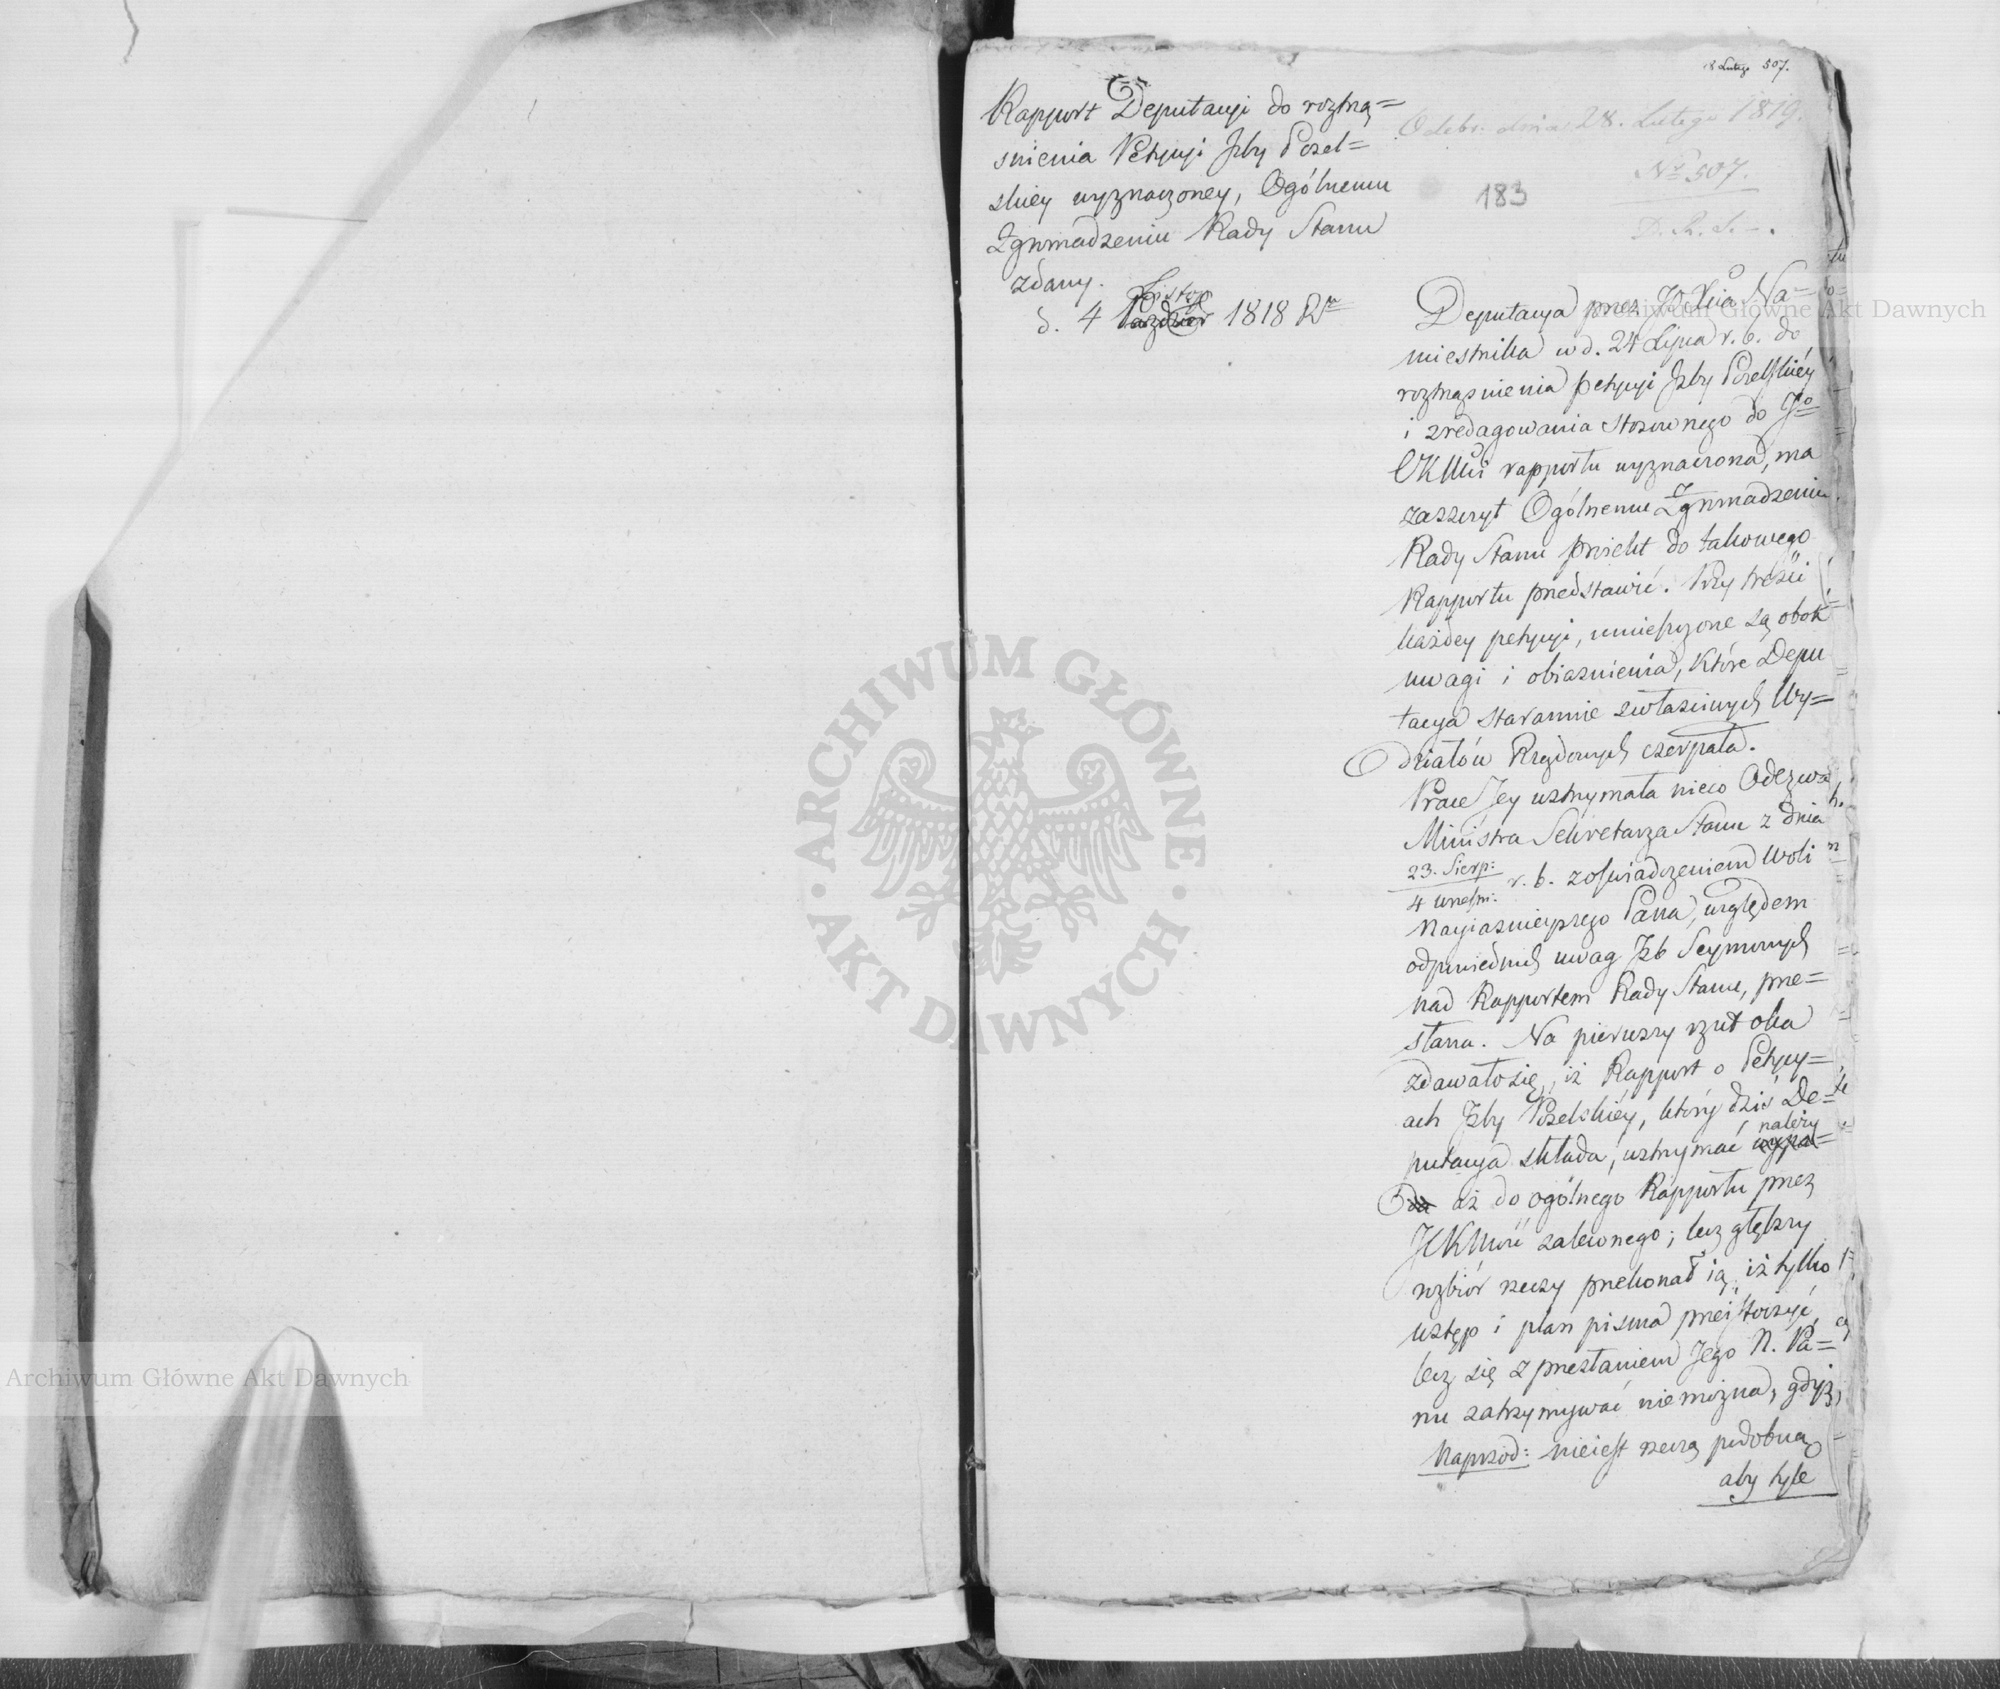 18 Lutego 507.
Rapport Deputacyi do roztrzą=
śnienia Petycyi Jzby Posel=
skiey wyznaczoney, Ogólnemu
Zgromadzeniu Rady Stanu
zdany.
Listop
d. 4 Paździer 1818 R
Odebr. dnia 28. Lutego 1819.
Nr 507.
183
D. R. S.
Deputacya przez JO Xcia Na=
miestnika w d. 24 Lipca r. b. do
roztrząśnienia petycyi Jzby Poselskiéy
i zredagowania stosownego do Jgo
CKMci rapportu wyznaczona, ma
zaszczyt Ogólnemu Zgromadzeniu
Rady Stanu proiekt do takowego
Rapportu przedstawić. Przy treści
każdey petycyi, umieszczone są obok
uwagi i obiaśnienia, które Depu
tacya starannie z właściwych Wy=
działów Rządowych czerpała.
Prace Jey wstrzymała nieco Odezwa
Ministra Sekretarza Stanu z dnia
23. Sierp:
4 Wrześn: r. b. z oświadczeniem Woli
Nayiaśnieyszego Pana, względem
odpowiednich uwag Jzb Seymowych
nad Rapportem Rady Stanu, prze=
słana. Na pierwszy rzut oka
zdawało się, iż Rapport o Petycy=
ach Jzby Poselskiéy, który dziś De=
należy
putacya składa, wstrzymać wypa=
da aż do ogólnego Rapportu przez
JCKMość zaleconego; lecz głębszy
rozbiór rzeczy przekonał ią, iż tylko
wstęp i plan pisma przeistoczyć,
lecz się z przesłaniem Jego N. Pa=
nu zatrzymywać nie można, gdyż,
Naprzód: nieiest rzeczą podobną
aby tyle
Archiwum Główne Akt Dawnych
ARCHIWUM GŁÓWNE · AKT DAWNYCH ·
Archiwum Główne Akt Dawnych